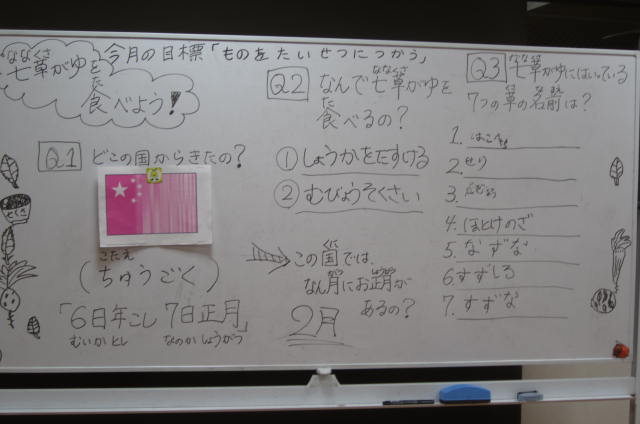 今月の目標「ものをたいせつにつかう」
ななくさ
七草がゆを
た
食べよう!
Q1 どこの国からきたの?
こたえ
(ちゅうごく)
「6日年こし 7日正月」
むいかとし なのかしょうがつ
Q2 なんで七草がゆを
た
食べるの?
①しょうかをたすける
②むびょうそくさい
くに
この国では、
なん月にお正月が
あるの?
2月
Q3 七草がゆにはいっている
7つの草の名前は?
1.
2. せり
3.
4. ほとけのざ
5. なずな
6. すずしろ
7. すずな